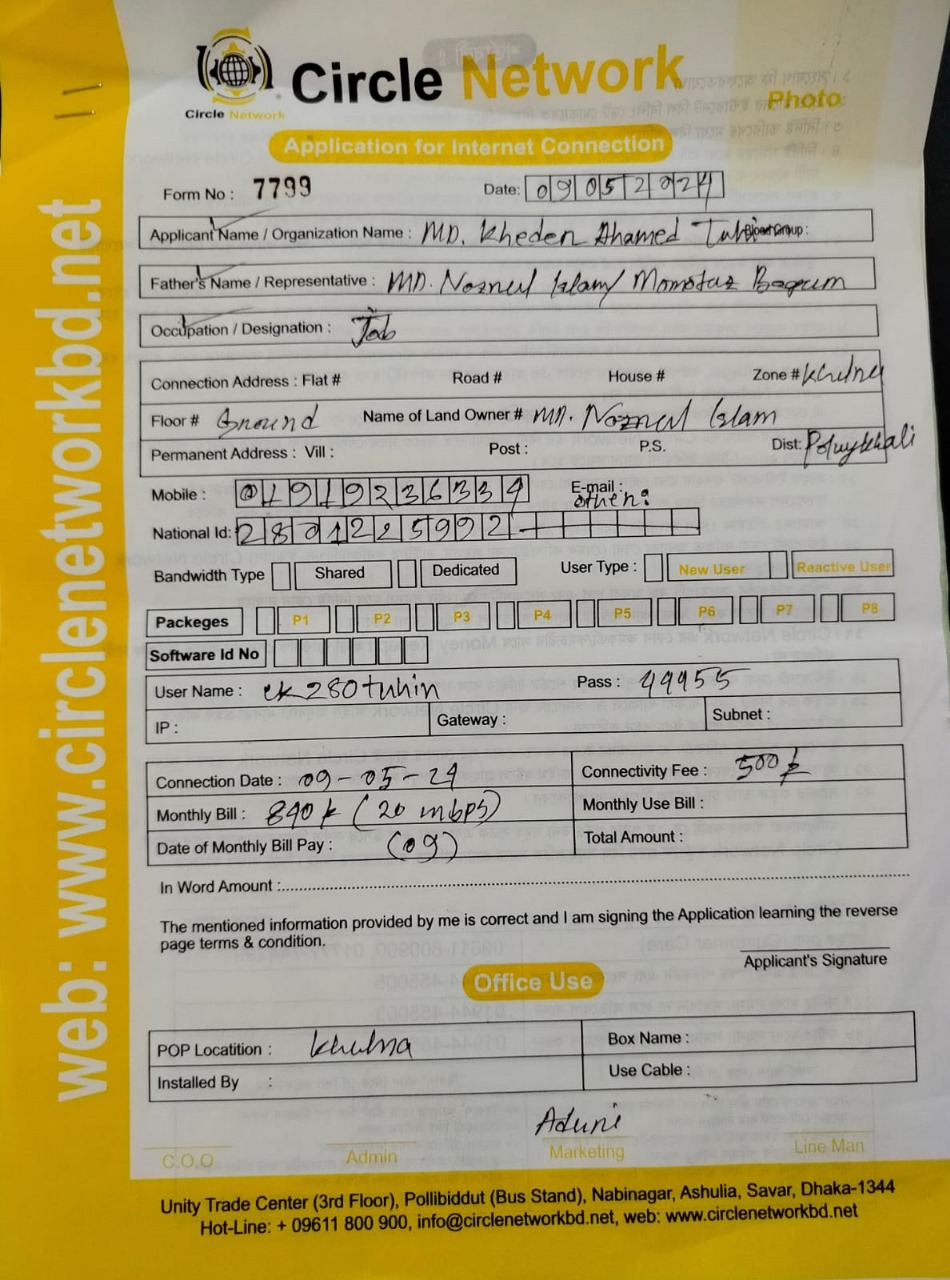 Circle Network
Circle Network
Photo
Application for Internet Connection
Form No : 7799
Date: 09052024
Applicant Name / Organization Name : MD. Kheden Ahamed Blood Group :
Father's Name / Representative : MD. Noznul Islam / Momotaz Begum
Occupation / Designation : Job
Connection Address : Flat # Road # House # Zone #
Floor # Ground Name of Land Owner # MD. Noznul Islam
Permanent Address : Vill : Post : P.S. Dist:
Mobile : 01919236334 E-mail :
other:
National Id: 2801225992
Bandwidth Type Shared Dedicated User Type : New User Reactive User
Packeges P1 P2 P3 P4 P5 P6 P7 P8
Software Id No
User Name : ck280tuhin Pass : 49955
IP : Gateway : Subnet :
Connection Date : 09-05-24 Connectivity Fee : 500
Monthly Bill : 840 (20 mbps) Monthly Use Bill :
Date of Monthly Bill Pay : (09) Total Amount :
In Word Amount :
The mentioned information provided by me is correct and I am signing the Application learning the reverse
page terms & condition.
Applicant's Signature
Office Use
POP Locatition : Khulna Box Name :
Installed By : Use Cable :
C.O.O Admin Marketing Line Man
Unity Trade Center (3rd Floor), Pollibiddut (Bus Stand), Nabinagar, Ashulia, Savar, Dhaka-1344
Hot-Line: + 09611 800 900, info@circlenetworkbd.net, web: www.circlenetworkbd.net
web: www.circlenetworkbd.net